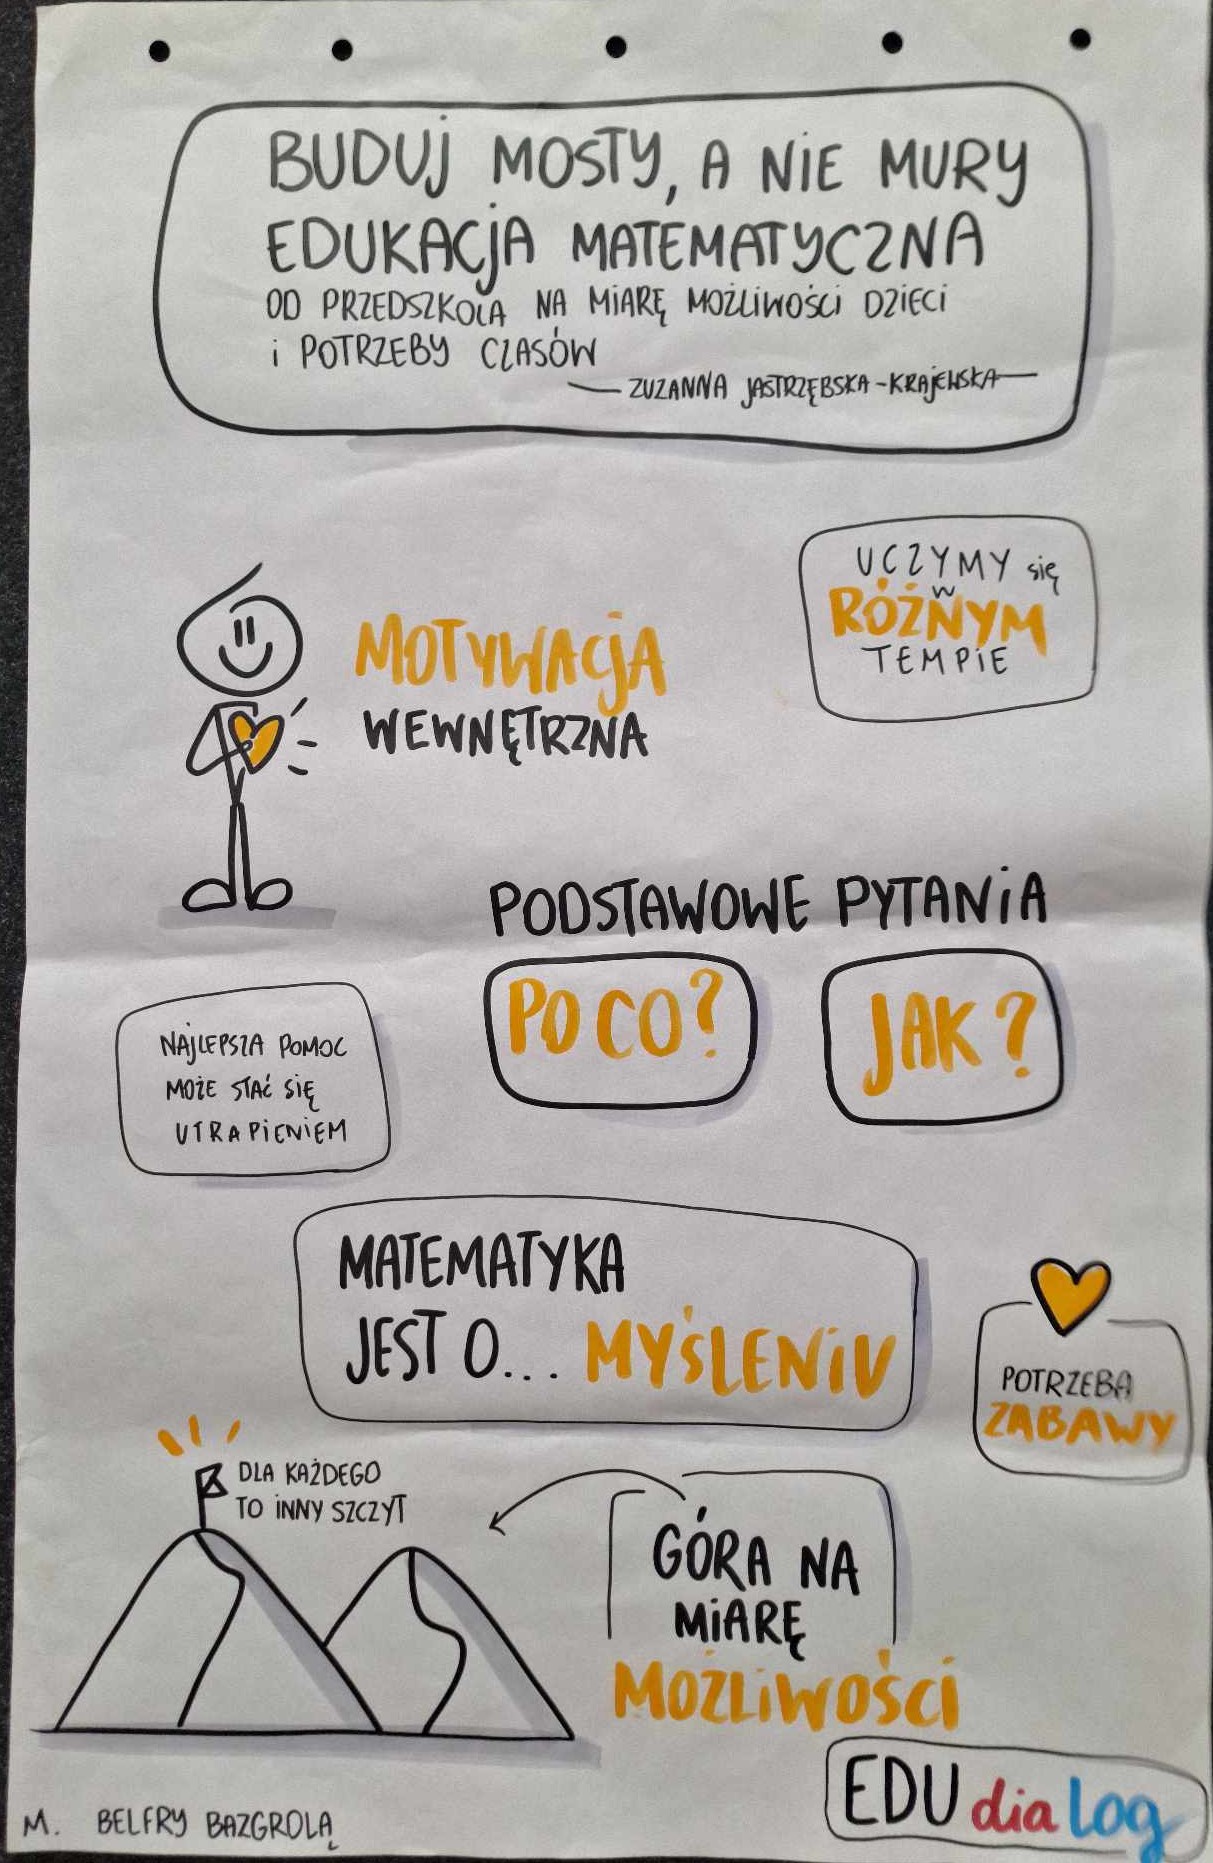 BUDUJ MOSTY, A NIE MURY
EDUKACJA MATEMATYCZNA
OD PRZEDSZKOLA NA MIARĘ MOŻLIWOŚCI DZIECI
i POTRZEBY CZASÓW
— ZUZANNA JASTRZĘBSKA-KRAJEWSKA —
UCZYMY się
w
RÓŻNYM
TEMPiE
MOTYWACJA
WEWNĘTRZNA
PODSTAWOWE PYTANiA
PO CO?
JAK?
NAJLEPSZA POMOC
MOŻE STAĆ SIĘ
UTRAPiENiEM
MATEMATYKA
JEST O... MYŚLENiU
POTRZEBA
ZABAWY
DLA KAŻDEGO
TO INNY SZCZYT
GÓRA NA
MiARĘ
MOŻLiWOŚCi
EDUdialog
M. BELFRY BAZGROLĄ